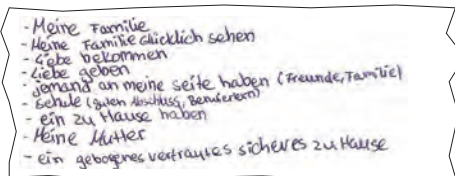 - Meine Familie
- Meine Familie Glücklich sehen
- Liebe bekommen
- Liebe geben
- Jemand an meine seite haben (Freunde, Familie)
- schule (guten Abschluss, Beruf)
- ein zu Hause haben
- Meine Mutter
- ein geborgenes vertrautes sicheres zu Hause